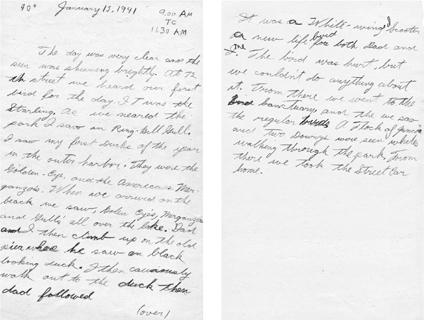 40° January 15, 1941
9:00 AM
TO
11:30 AM
The day was very clear and the
sun was shineing brightly. At 72
th street we heard our first
bird for the day. It was the
Starling. As we neared the
park I saw an Ring-bill Gull.
I saw my first ducks of the year
in the outer harbor. They were the
Golden-Eye, and the American Mer-
ganzers. When we arrived on the
black we saw, Golden Eyes, Merganzers
and Gulls all over the lake. Dad
and I then climb up on the old
pier where he saw an black
looking duck. I then cautiously
walk out to the duck then
dad followed
(over)
It was a White-winged Scooter
a new life bird for both Dad and
me. The bird was hurt, but
we couldn't do anything about
it. From there we went to the
bird sanctuary, and there we saw
the regular birds. A flock of
and two Downys were seen while
walking through the park. From
there we took the Streetcar
home.